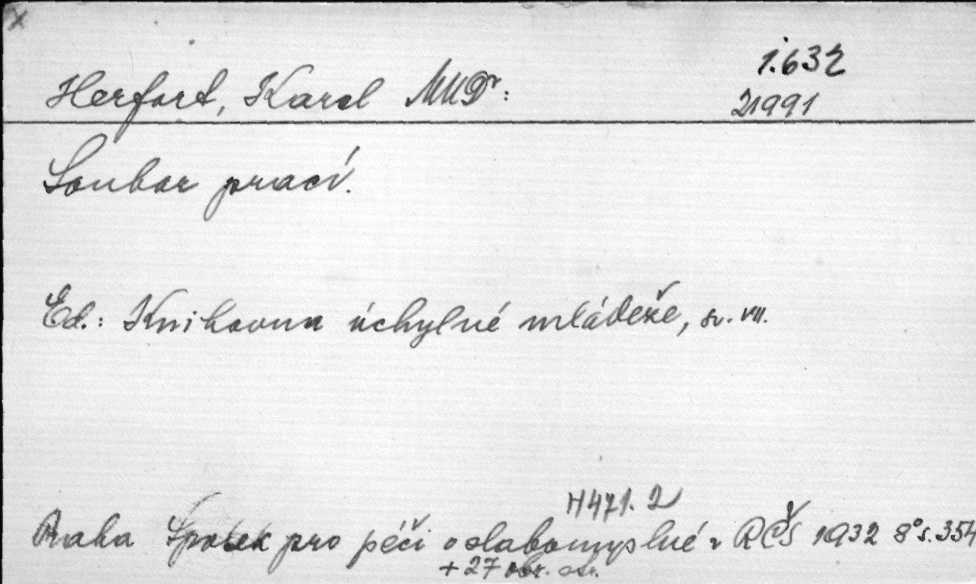 x
1.632
Herfort, Karel MUDr:
21991
Soubor prací.
Ed.: Knihovna úchylné mládeže, sv. VII.
H471.2
Praha Spolek pro péči o slabomyslné v RČS 1932 8° s. 354
+ 27 obr. str.